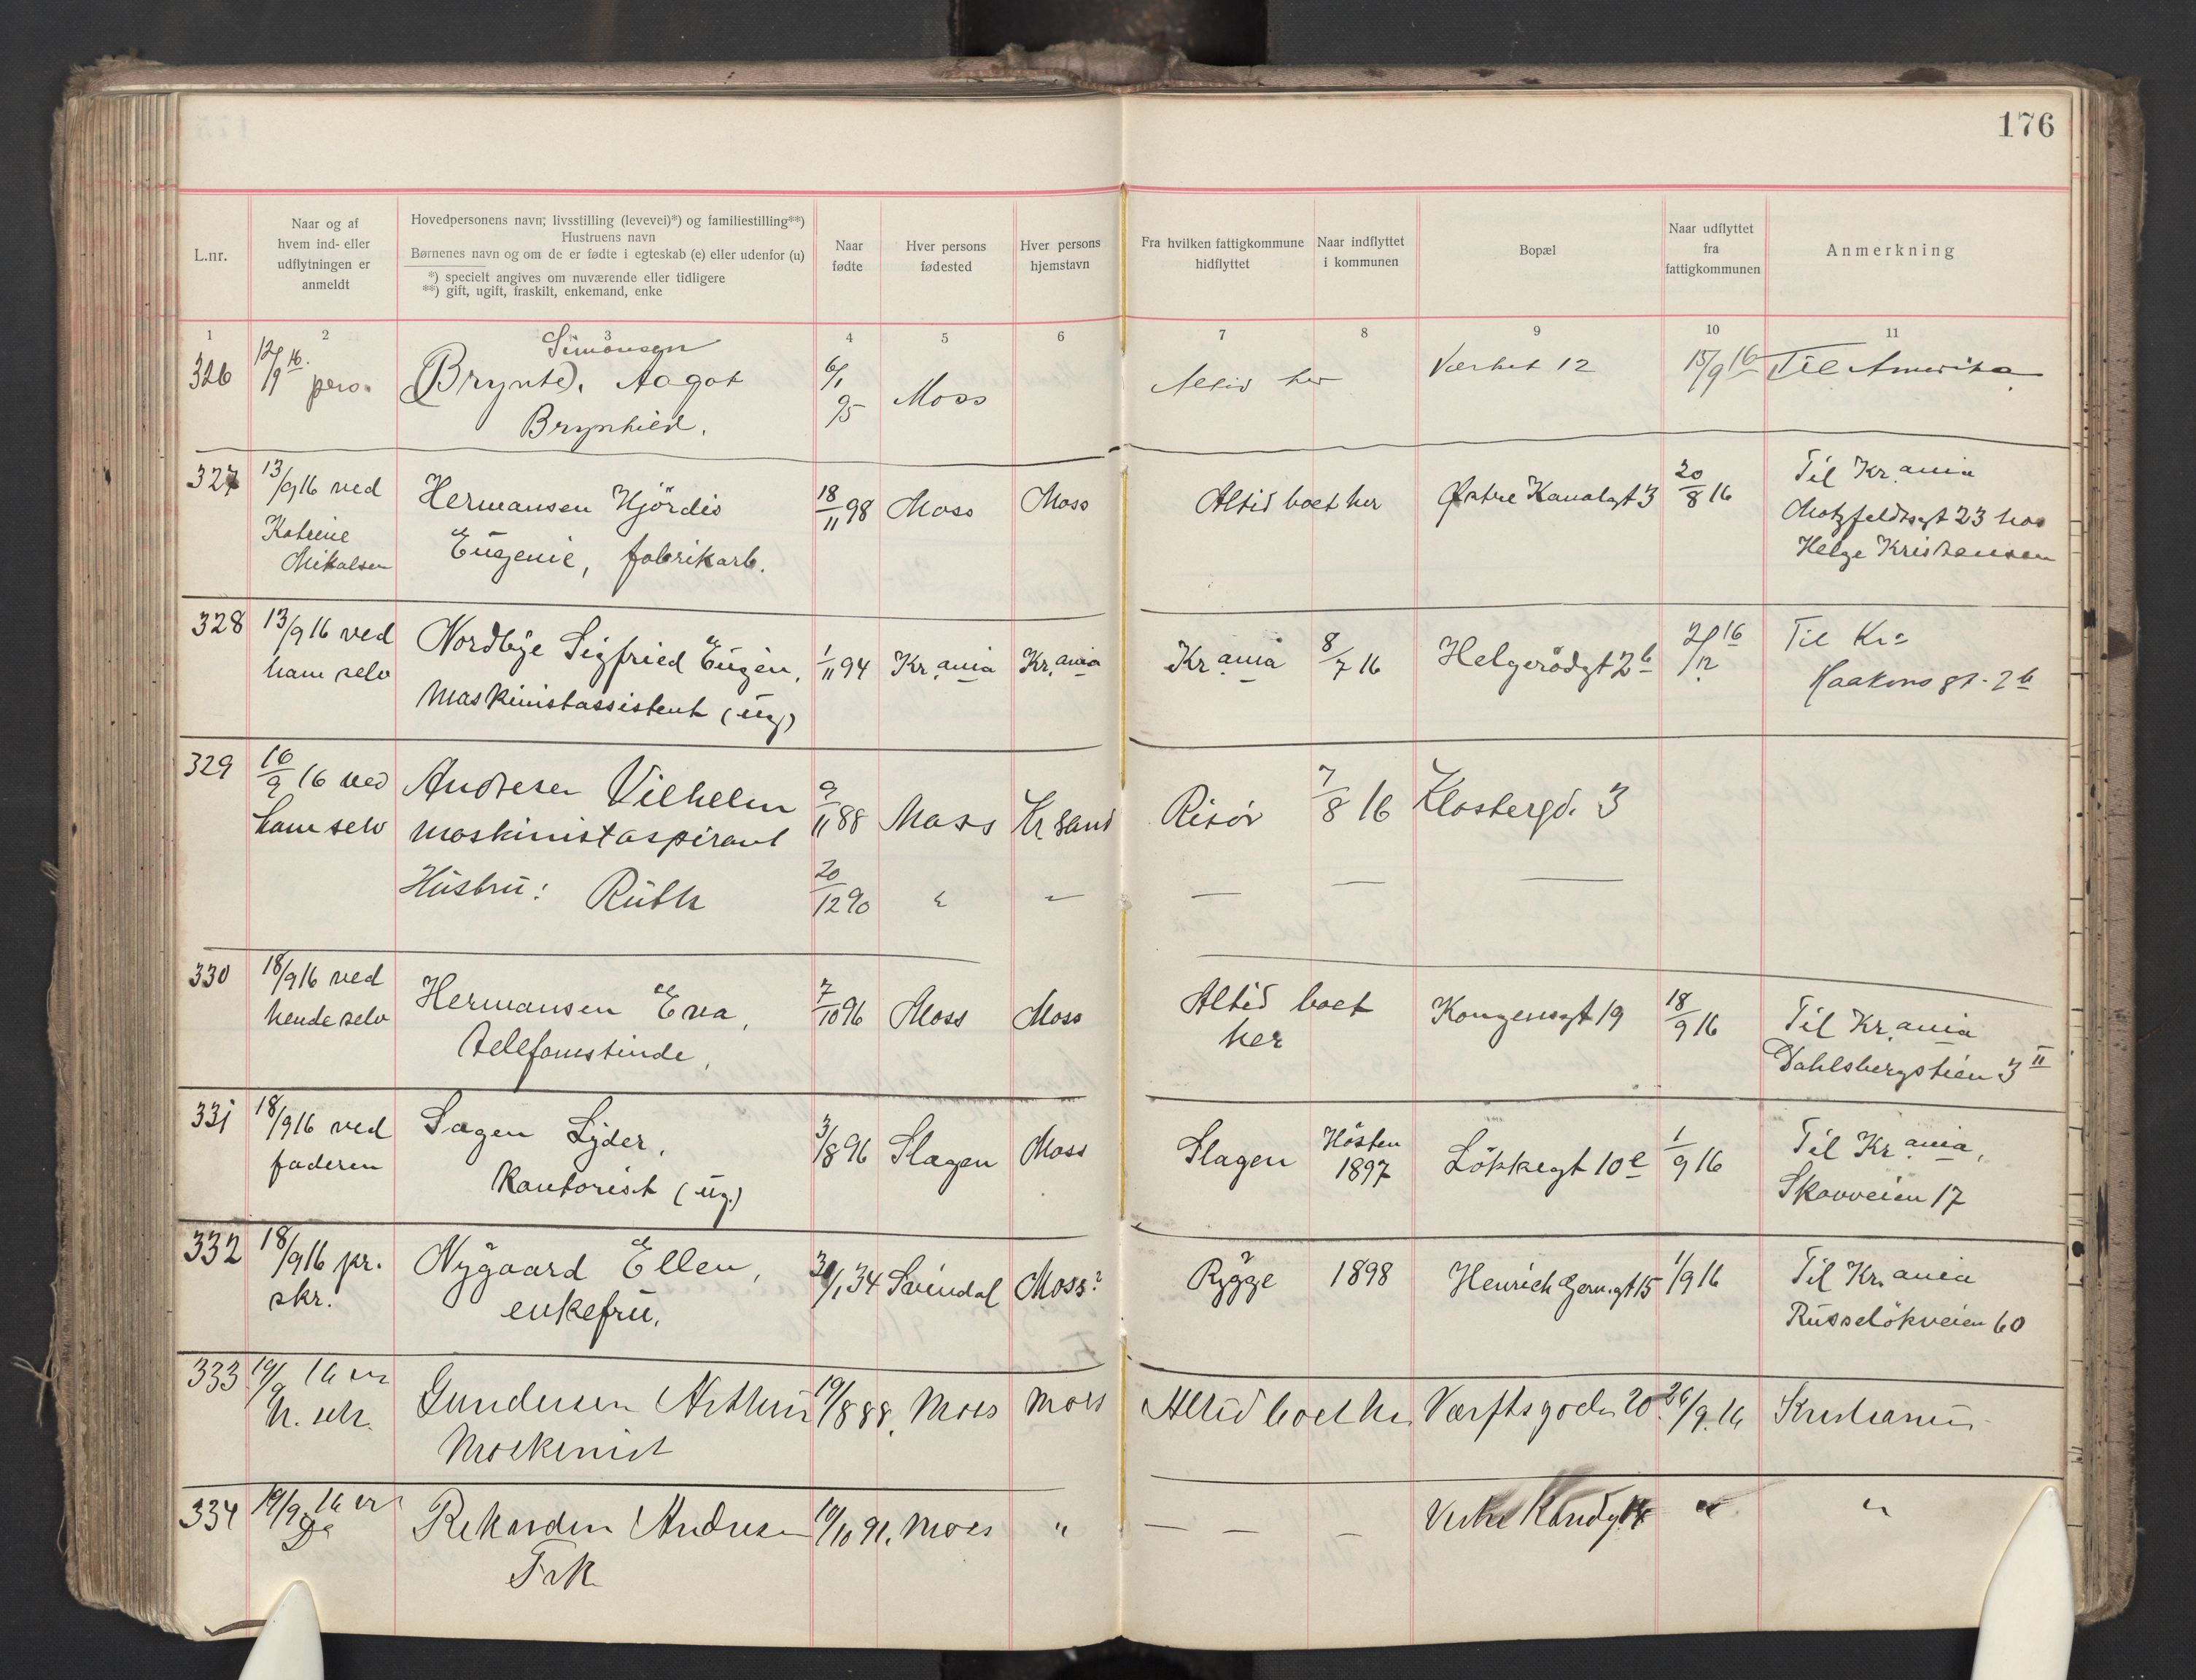 176
L.nr.
Naar og af
hvem ind- eller
udflytningen er
anmeldt
Hovedpersonens navn; livsstilling (levevei)*) og familiestilling**)
Hustruens navn
Børnenes navn og om de er fødte i egteskab (e) eller udenfor (u)
*) specielt angives om nuværende eller tidligere
**) gift, ugift, fraskilt, enkemand, enke
Naar
fødte
Hver persons
fødested
Hver persons
hjemstavn
Fra hvilken fattigkommune
hidflyttet
Naar indflyttet
i kommunen
Bopæl
Naar udflyttet
fra
fattigkommunen
Anmerkning
1 2 3 4 5 6 7 8 9 10 11
326
12/9 16.
pers.
Simonsen
Aagot
Brynhild.
6/1
95
Moss
Altid her
Værket 12
15/9 16
Til Amerika
327
13/9 16 ved
Katrine
Mikalsen
Hermansen Hjördis
Eugenie, fabrikarb.
18/11 98
Moss
Moss
Altid boet her
Østre Kanalgt 3
20/8 16
Til Kr.ania
Motzfeldtsgt 23 hos
Helge Kristensen
328
13/9 16 ved
ham selv
Nordbye Sigfried Eugen,
Maskinistassistent (ug)
1/11 94
Kr.ania
Kr.ania
Kr.ania
8/7 16
Helgerödgt 2b
2/12 16
Til Kr.
Haakons gt. 2b
329
16/9 16 ved
ham selv
Andresen Vilhelm
maskinistaspirant
Hustru: Ruth
9/11 88
20/12 90
Moss
"
Kr sand
—
Risör
—
7/8 16
—
Klostergd. 3
—
330
18/9 16 ved
hende selv
Hermansen Eva,
telefonistinde,
7/10 96
Moss
Moss
Altid boet
her
Kongensgt 19
18/9 16
Til Kr.ania
Dahlsbergstien 3 II
331
18/9 16 ved
faderen
Sagen Lyder,
Kontorist (ug.)
3/8 96
Slagen
Moss
Slagen
Hösten
1897
Lökkegt 10e
1/9 16
Til Kr.ania,
Skovveien 17
332
18/9 16 pr.
skr.
Nygaard Ellen,
enkefru,
/1 34
Svindal
Moss?
Rygge
1898
Henrich Gern.gt 15
1/9 16
Til Kr.ania
Russelökveien 60
333
19/9 16 ver
h. selv.
Gundersen Arthur
Maskinist
19/8 88.
Moss
Moss
Altid boet her
Værftsgaden 20
26/9. 16
Kristiania
334
19/9 16 ver
Do
Andresen
Frk
19/10 91.
Moss
"
— — —
"
"